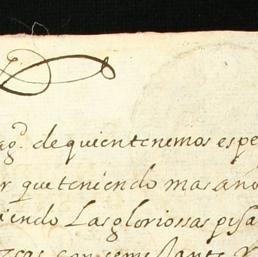 ag.d de quien tenemos espe
r que teniendo mas año
iendo Las gloriossas pisa